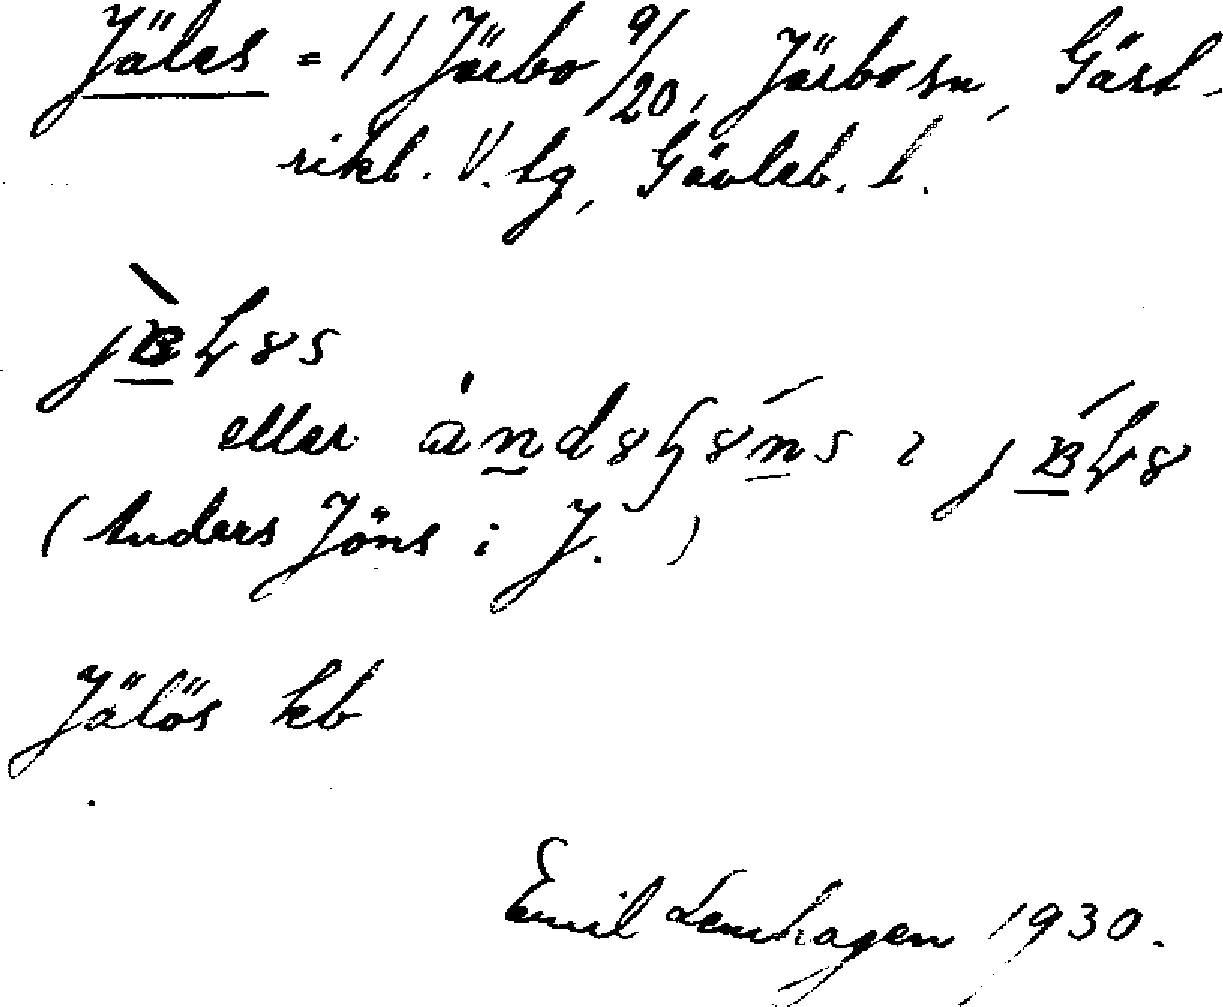 Jäles = 11 Järbo 9/20, Järbo sn, Gäst-
rikl. V. tg, Gävleb. l.
eller
(Anders Jöns i J.)
Jälös kb
Emil Lenhagen 1930.